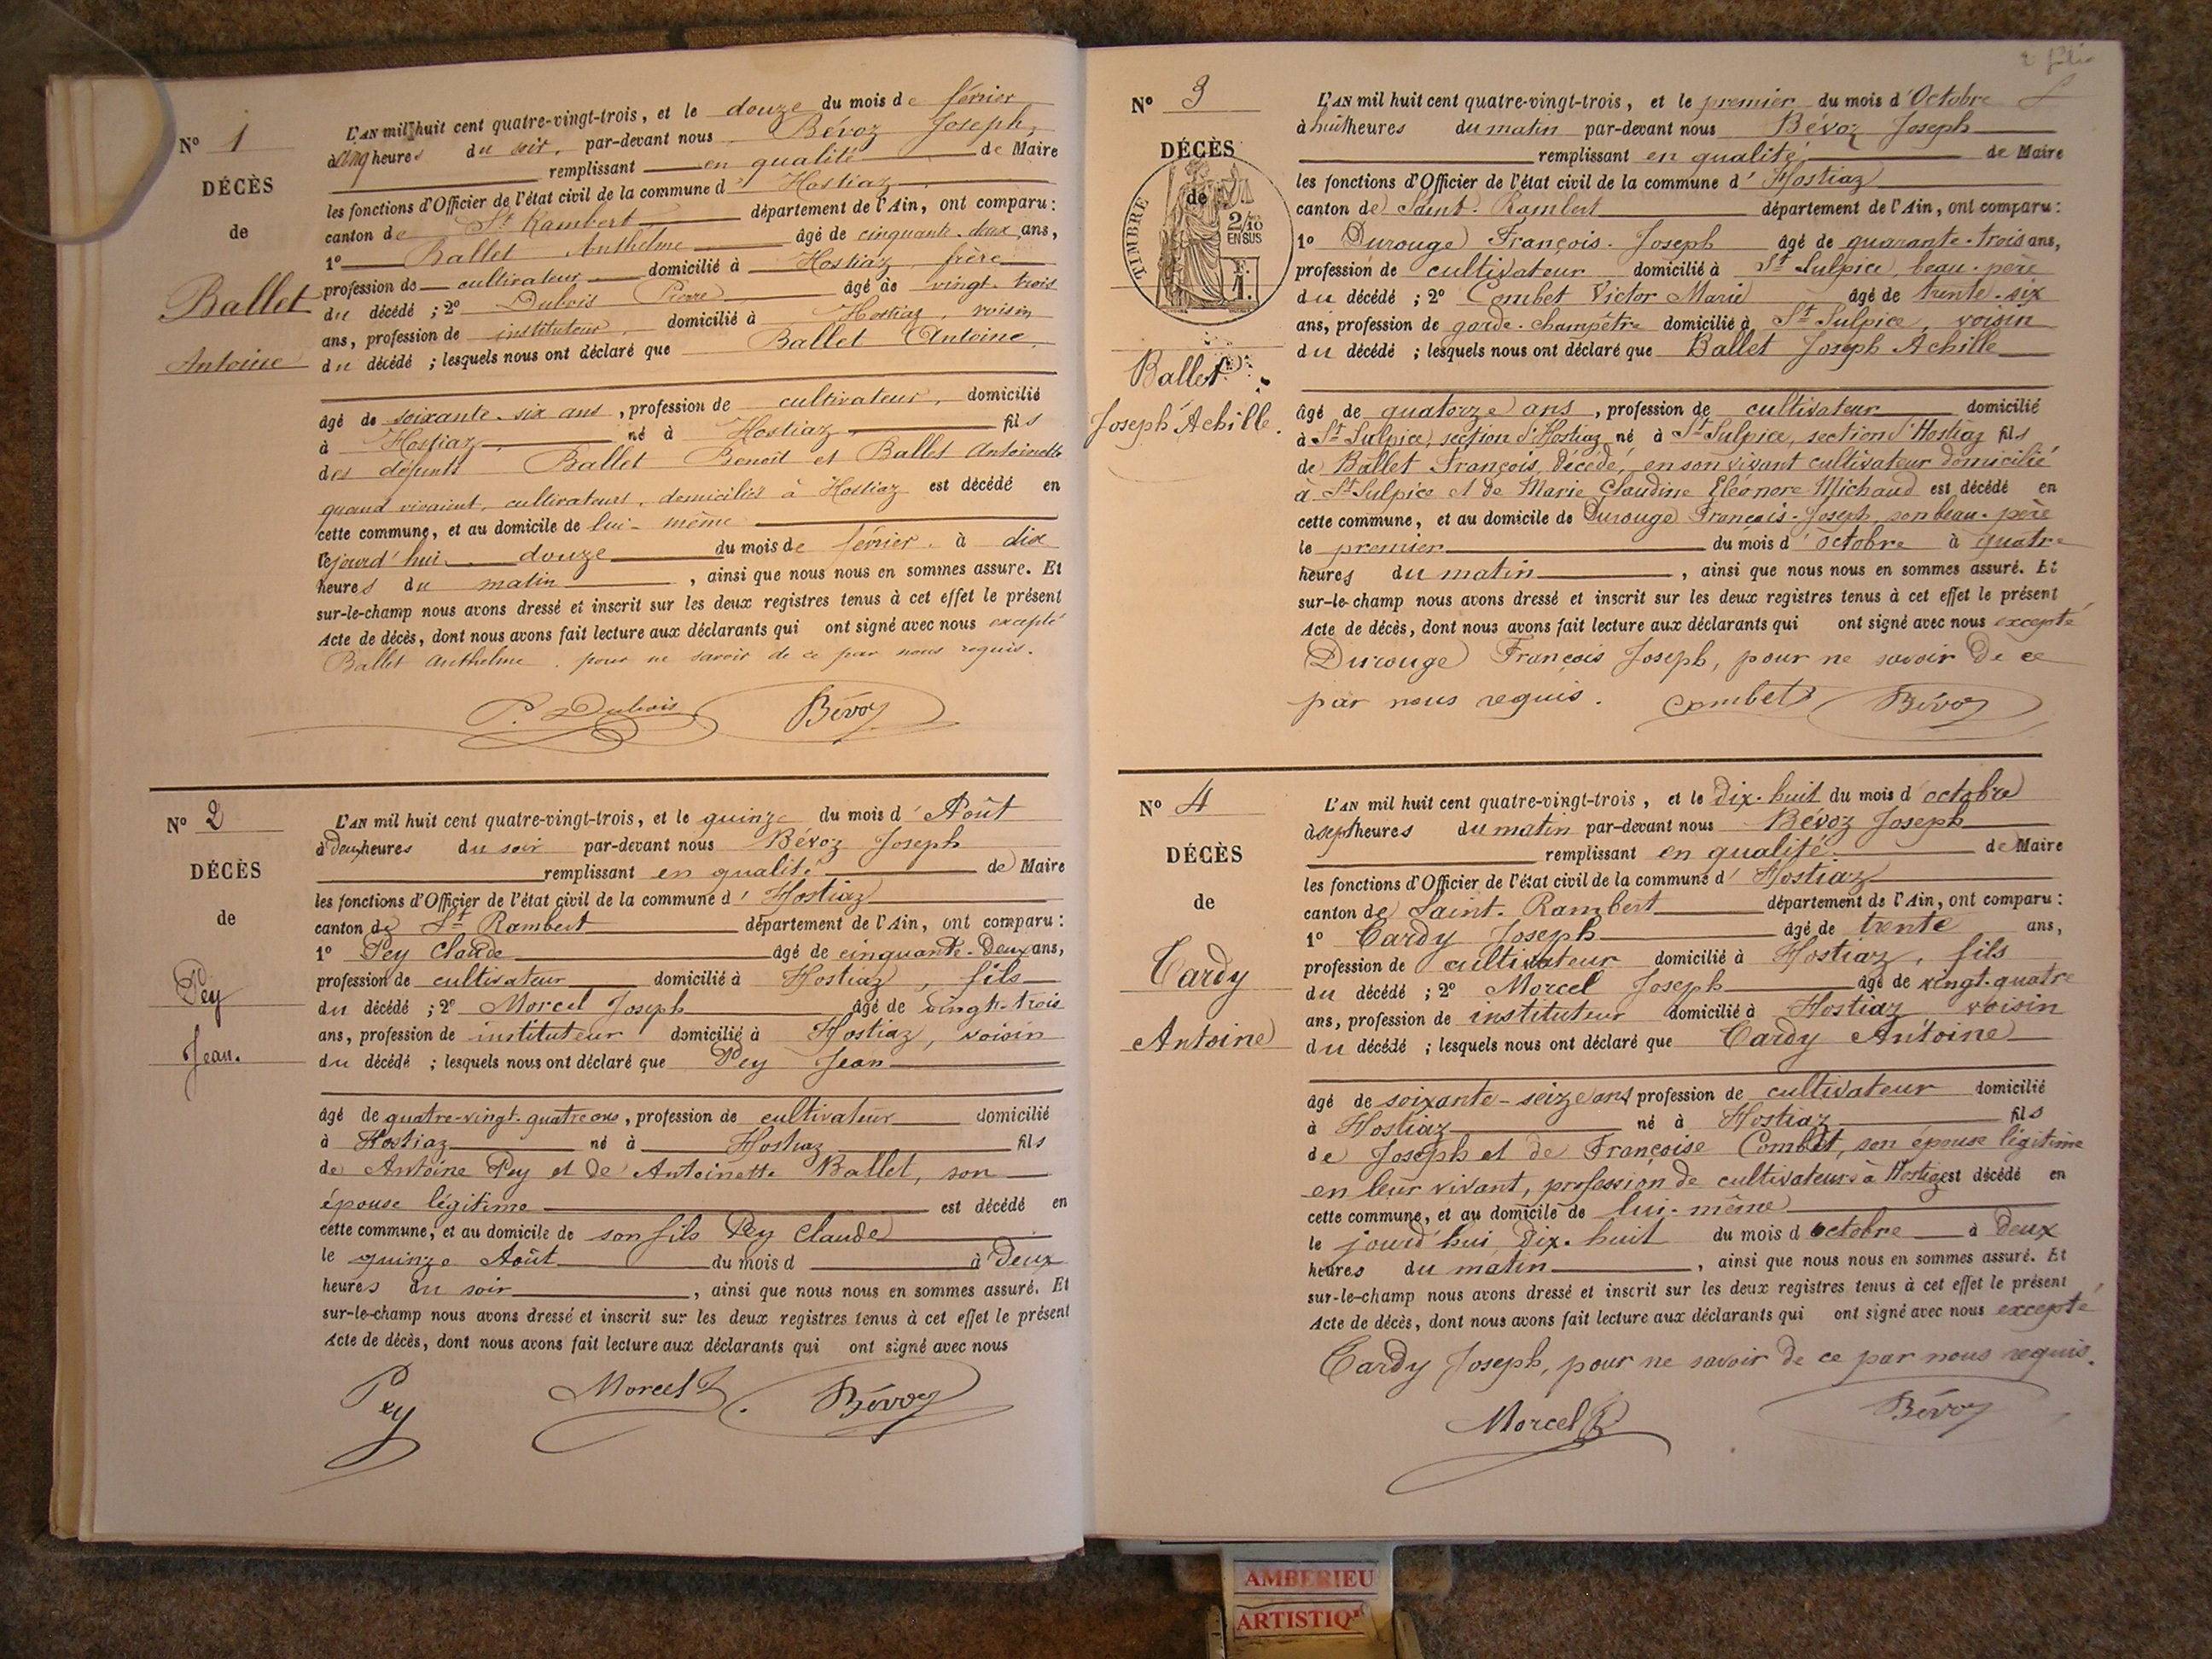 N° 1
DÉCÈS
de
Ballet
Antoine
L'AN mil huit cent quatre-vingt-trois, et le douze du mois de février
à cinq heures du soir, par-devant nous Bévoz Joseph,
remplissant en qualité de Maire
les fonctions d'Officier de l'état civil de la commune d' Hostiaz
canton de St Rambert département de l'Ain, ont comparu :
1° Ballet Anthelme âgé de cinquante-deux ans,
profession de cultivateur domicilié à Hostiaz, frère
du décédé ; 2° Dubois Pierre âgé de vingt-trois
ans, profession de instituteur, domicilié à Hostiaz, voisin
du décédé ; lesquels nous ont déclaré que Ballet Antoine,
âgé de soixante-six ans, profession de cultivateur, domicilié
à Hostiaz, né à Hostiaz, fils
des défunts Ballet Benoît et Ballet Antoinette
quand vivaient, cultivateurs, domiciliés à Hostiaz est décédé en
cette commune, et au domicile de lui-même
le jourd'hui douze du mois de février, à dix
heures du matin, ainsi que nous nous en sommes assuré. Et
sur-le-champ nous avons dressé et inscrit sur les deux registres tenus à cet effet le présent
Acte de décès, dont nous avons fait lecture aux déclarants qui ont signé avec nous excepté
Ballet Anthelme, pour ne savoir de ce par nous requis.
P. Dubois Bévoz
N° 2
DÉCÈS
de
Pey
Jean.
L'AN mil huit cent quatre-vingt-trois, et le quinze du mois d'Août
à Deux heures du soir par-devant nous Bévoz Joseph
remplissant en qualité de Maire
les fonctions d'Officier de l'état civil de la commune d'Hostiaz
canton de St Rambert département de l'Ain, ont comparu :
1° Pey Claude âgé de cinquante-Deux ans,
profession de cultivateur domicilié à Hostiaz, fils
du décédé ; 2° Morcel Joseph âgé de vingt-trois
ans, profession de instituteur domicilié à Hostiaz, voisin
du décédé ; lesquels nous ont déclaré que Pey Jean
âgé de quatre-vingt-quatre ans, profession de cultivateur domicilié
à Hostiaz né à Hostiaz fils
de Antoine Pey et de Antoinette Ballet, son
épouse légitime est décédé en
cette commune, et au domicile de son fils Pey Claude
le quinze Août du mois d à Deux
heures du soir, ainsi que nous nous en sommes assuré. Et
sur-le-champ nous avons dressé et inscrit sur les deux registres tenus à cet effet le présent
Acte de décès, dont nous avons fait lecture aux déclarants qui ont signé avec nous
Pey Morcel J. Bévoz
N° 3
DÉCÈS
de
TIMBRE
2/10
EN SUS
Ballet
Joseph Achille.
L'AN mil huit cent quatre-vingt-trois, et le premier du mois d'Octobre
à huit heures du matin par-devant nous Bévoz Joseph
remplissant en qualité de Maire
les fonctions d'Officier de l'état civil de la commune d'Hostiaz
canton de Saint-Rambert département de l'Ain, ont comparu :
1° Durouge François-Joseph âgé de quarante-trois ans,
profession de cultivateur domicilié à St Sulpice, beau-père
du décédé ; 2° Combet Victor Marie âgé de trente-six
ans, profession de garde-champêtre domicilié à St Sulpice, voisin
du décédé ; lesquels nous ont déclaré que Ballet Joseph Achille
âgé de quatorze ans, profession de cultivateur domicilié
à St Sulpice, section d'Hostiaz né à St Sulpice, section d'Hostiaz fils
de Ballet François, Décédé, en son vivant cultivateur domicilié
à St Sulpice et de Marie Claudine Eléonore Michaud est décédé en
cette commune, et au domicile de Durouge François-Joseph, son beau-père
le premier du mois d'Octobre à quatre
heures du matin, ainsi que nous nous en sommes assuré. Et
sur-le-champ nous avons dressé et inscrit sur les deux registres tenus à cet effet le présent
Acte de décès, dont nous avons fait lecture aux déclarants qui ont signé avec nous excepté
Durouge François Joseph, pour ne savoir De ce
par nous requis. Combet Bévoz
N° 4
DÉCÈS
de
Cardy
Antoine
L'AN mil huit cent quatre-vingt-trois, et le Dix-huit du mois d'octobre
à sept heures du matin par-devant nous Bévoz Joseph
remplissant en qualité de Maire
les fonctions d'Officier de l'état civil de la commune d'Hostiaz
canton de Saint-Rambert département de l'Ain, ont comparu :
1° Cardy Joseph âgé de trente ans,
profession de cultivateur domicilié à Hostiaz, fils
du décédé ; 2° Morcel Joseph âgé de vingt-quatre
ans, profession de instituteur domicilié à Hostiaz, voisin
du décédé ; lesquels nous ont déclaré que Cardy Antoine
âgé de soixante-seize ans profession de cultivateur domicilié
à Hostiaz né à Hostiaz fils
de Joseph et de Françoise Combet, son épouse légitime
en leur vivant, profession de cultivateurs à Hostiaz est décédé en
cette commune, et au domicile de lui-même
le jourd'hui Dix-huit du mois d octobre à Deux
heures du matin, ainsi que nous nous en sommes assuré. Et
sur-le-champ nous avons dressé et inscrit sur les deux registres tenus à cet effet le présent
Acte de décès, dont nous avons fait lecture aux déclarants qui ont signé avec nous excepté
Cardy Joseph, pour ne savoir de ce par nous requis.
Morcel J. Bévoz
AMBERIEU
ARTISTIQ